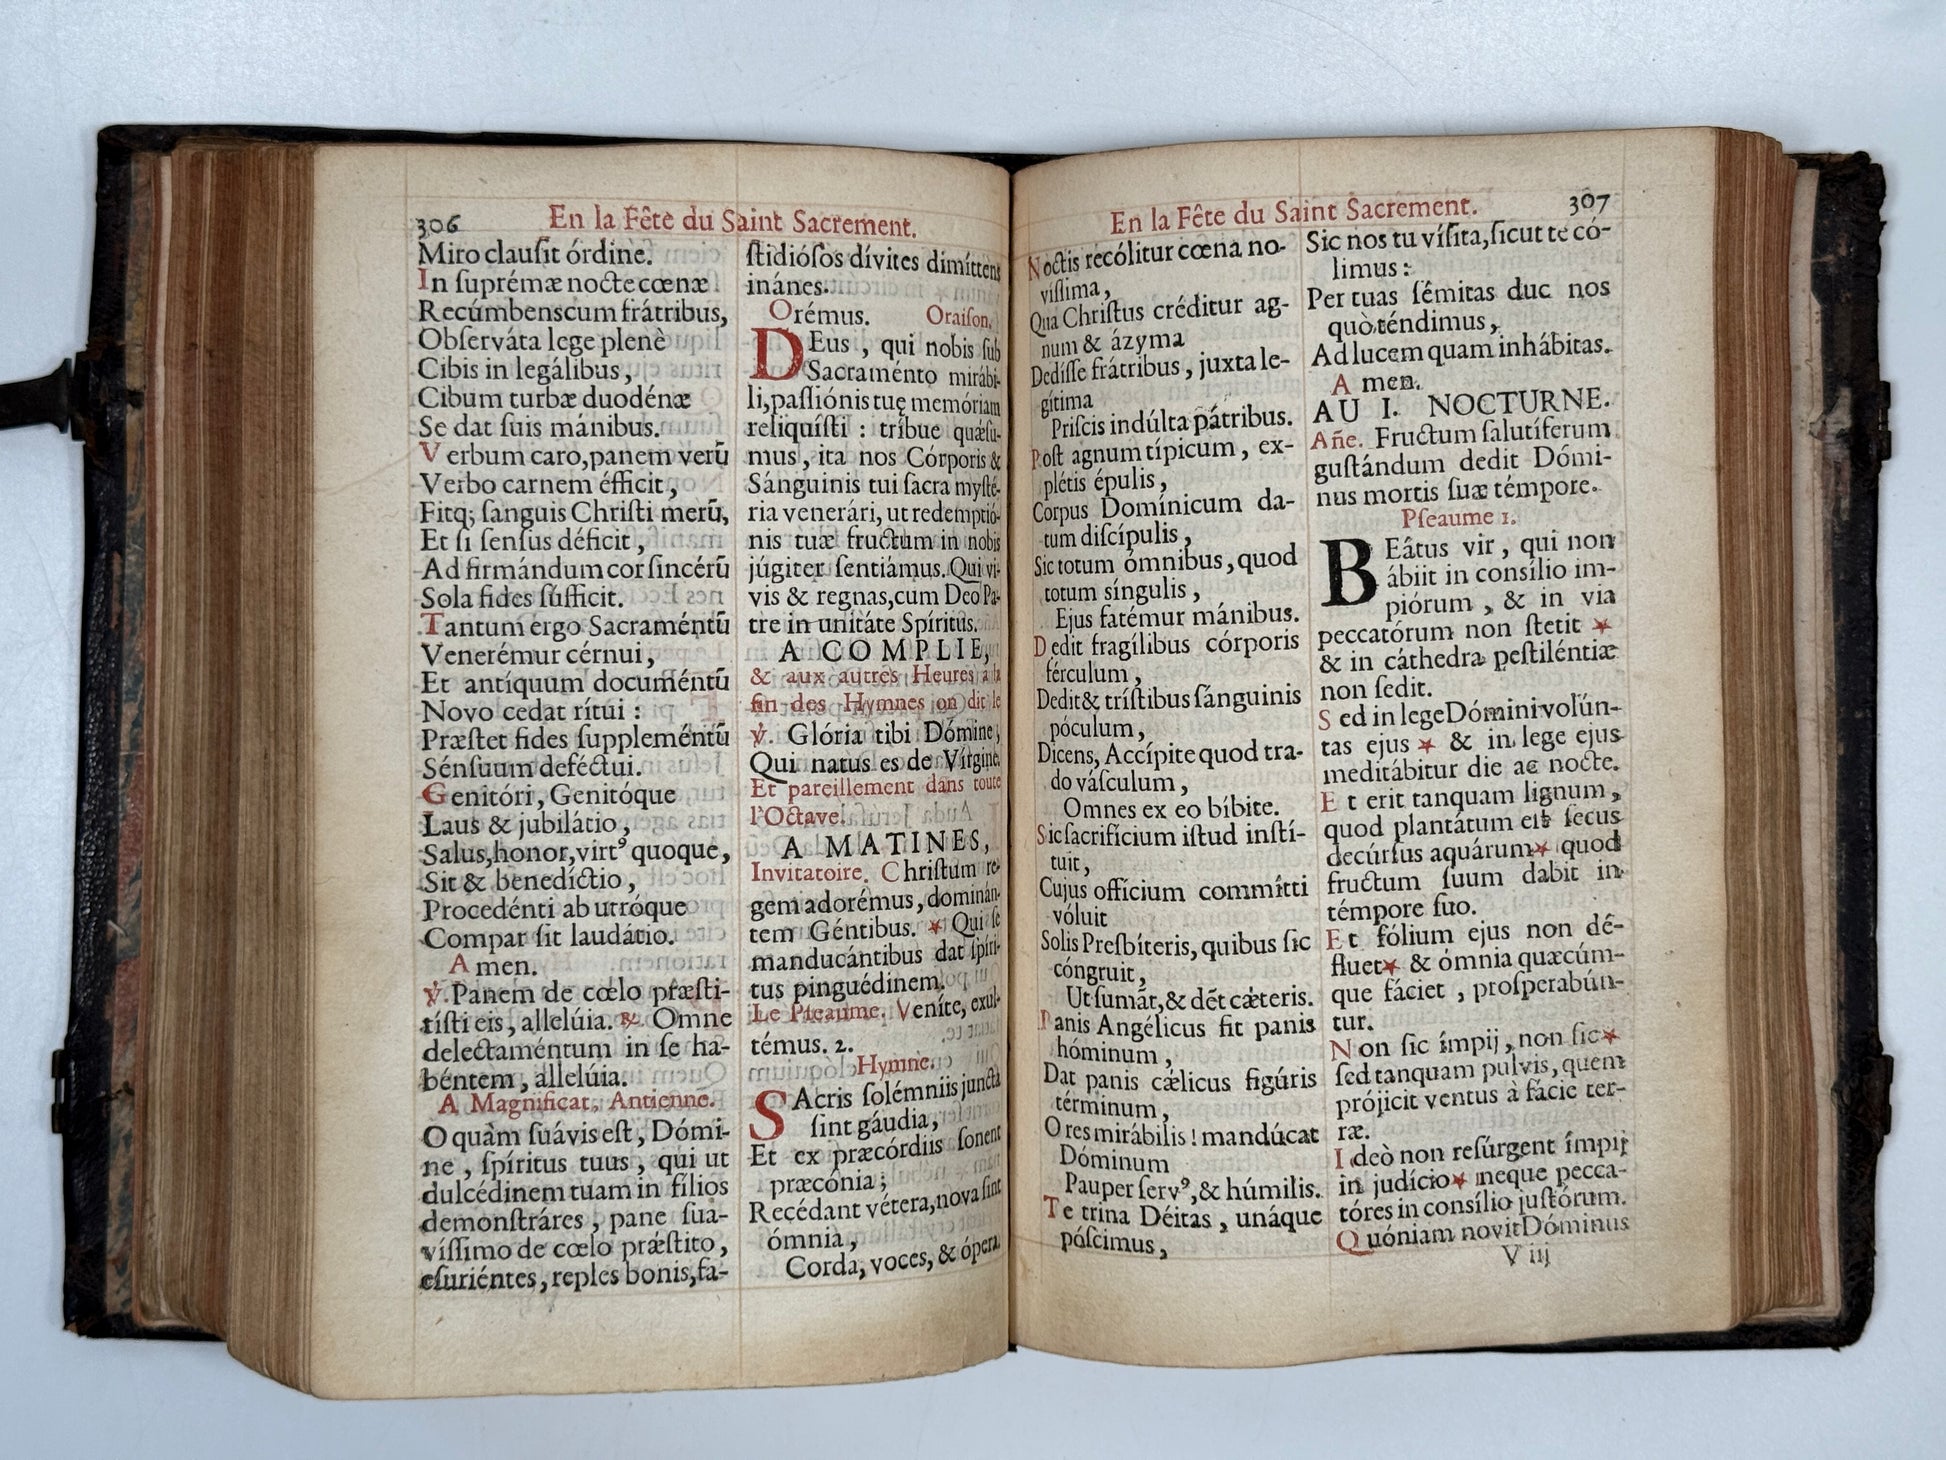 306
En la Fête du Saint Sacrement.
Miro clausit órdine.
In suprémæ nocte cœnæ
Recúmbens cum frátribus,
Observáta lege plenè
Cibis in legálibus,
Cibum turbæ duodénæ
Se dat suis mánibus.
Verbum caro, panem verũ
Verbo carnem éfficit,
Fitq; sanguis Christi merũ,
Et si sensus déficit,
Ad firmándum cor sincérũ
Sola fides súfficit.
Tantum ergo Sacraméntũ
Venerémur cérnui,
Et antíquum documéntũ
Novo cedat rítui :
Præstet fides suppleméntũ
Sénsuum deféctui.
Genitóri, Genitóque
Laus & jubilátio,
Salus, honor, virtꝰ quoque,
Sit & benedíctio,
Procedénti ab utróque
Compar sit laudátio.
Amen.
℣. Panem de cœlo præsti-
tísti eis, allelúia. ℟. Omne
delectaméntum in se ha-
béntem, allelúia.
A Magnificat, Antienne.
O quàm suávis est, Dómi-
ne, spíritus tuus, qui ut
dulcédinem tuam in fílios
demonstráres, pane sua-
víssimo de cœlo præstito,
esuriéntes, reples bonis, fa-
stidiósos dívites dimíttens
inánes.
Orémus. Oraison.
DEus, qui nobis sub
Sacraménto mirábi-
li, passiónis tuę memóriam
reliquísti : tríbue quæsu-
mus, ita nos Córporis &
Sánguinis tui sacra mysté-
ria venerári, ut redemptió-
nis tuæ fructum in nobis
júgiter sentiámus. Qui vi-
vis & regnas, cum Deo Pa-
tre in unitáte Spíritûs.
A COMPLIE,
& aux autres Heures à la
fin des Hymnes on dit le
℣. Glória tibi Dómine,
Qui natus es de Vírgine.
Et pareillement dans toute
l'Octave.
A MATINES,
Invitatoire. Christum re-
gem adorémus, dominán-
tem Géntibus. * Qui se
manducántibus dat spíri-
tus pinguédinem.
Le Pseaume, Veníte, exul-
témus. 2.
Hymne.
SAcris solémniis juncta
sint gáudia,
Et ex præcórdiis sonent
præcónia;
Recédant vétera, nova sint
ómnia,
Corda, voces, & ópera.
En la Fête du Saint Sacrement.
307
Noctis recólitur cœna no-
víssima,
Qua Christus créditur ag-
num & ázyma
Dedísse frátribus, juxta le-
gítima
Priscis indúlta pátribus.
Post agnum típicum, ex-
plétis épulis,
Corpus Domínicum da-
tum discípulis,
Sic totum ómnibus, quod
totum síngulis,
Ejus fatémur mánibus.
Dedit fragílibus córporis
férculum,
Dedit & trístibus sánguinis
póculum,
Dicens, Accípite quod tra-
do vásculum,
Omnes ex eo bíbite.
Sic sacrifícium istud instí-
tuit,
Cujus offícium commítti
vóluit
Solis Presbíteris, quibus sic
cóngruit,
Ut sumãt, & dẽt cæteris.
Panis Angélicus fit panis
hóminum,
Dat panis cælicus figúris
términum,
O res mirábilis! mandúcat
Dóminum
Pauper servꝰ, & húmilis.
Te trina Déitas, unáque
póscimus,
Sic nos tu vísita, sicut te có-
limus :
Per tuas sémitas duc nos
quò téndimus,
Ad lucem quam inhábitas.
Amen.
AU I. NOCTURNE.
Añe. Fructum salutíferum
gustándum dedit Dómi-
nus mortis suæ témpore.
Pseaume 1.
BEátus vir, qui non
ábiit in consílio im-
piórum, & in via
peccatórum non stetit *
& in cáthedra pestiléntiæ
non sedit.
Sed in lege Dómini volún-
tas ejus * & in lege ejus
meditábitur die ac nocte.
Et erit tanquam lignum,
quod plantátum est secus
decúrsus aquárum * quod
fructum suum dabit in
témpore suo.
Et fólium ejus non dé-
fluet * & ómnia quæcúm-
que fáciet, prosperabún-
tur.
Non sic ímpij, non sic *
sed tanquam pulvis, quem
prójicit ventus à fácie ter-
ræ.
Ideò non resúrgent ímpij
in judício * neque pecca-
tóres in consílio justórum.
Quóniam novit Dóminus
V iij